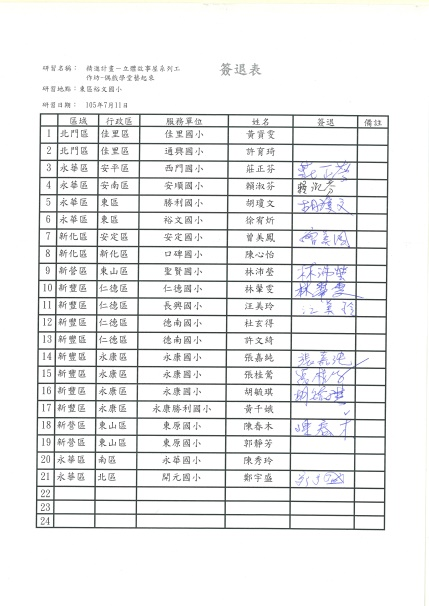 簽退表
研習名稱： 精進計畫－立體故事屋系列工
作坊-偶戲學堂藝起來
研習地點：東區裕文國小
研習日期： 105年7月11日
區域 行政區 服務單位 姓名 簽退 備註
1 北門區 佳里區 佳里國小 黃賓雯
2 北門區 佳里區 通興國小 許育琦
3 永華區 安平區 西門國小 莊正芬 莊正芬
4 永華區 安南區 安順國小 賴淑芬 賴淑芬
5 永華區 東區 勝利國小 胡瓊文 胡瓊文
6 永華區 東區 裕文國小 徐宥炘
7 新化區 安定區 安定國小 曾美鳳 曾美鳳
8 新化區 新化區 口碑國小 陳心怡
9 新營區 東山區 聖賢國小 林沛瑩 林沛瑩
10 新豐區 仁德區 仁德國小 林肇雯 林肇雯
11 新豐區 仁德區 長興國小 汪美玲 汪美玲
12 新豐區 仁德區 德南國小 杜玄得
13 新豐區 仁德區 德南國小 許文綺
14 新豐區 永康區 永康國小 張嘉純 張嘉純
15 新豐區 永康區 永康國小 張桂鶯
16 新豐區 永康區 永康國小 胡毓琪 胡毓琪
17 新豐區 永康區 永康勝利國小 黃千娥
18 新營區 東山區 東原國小 陳春木 陳春木
19 新營區 東山區 東原國小 郭靜芳
20 永華區 南區 永華國小 陳秀玲
21 永華區 北區 開元國小 鄭宇盛
22
23
24